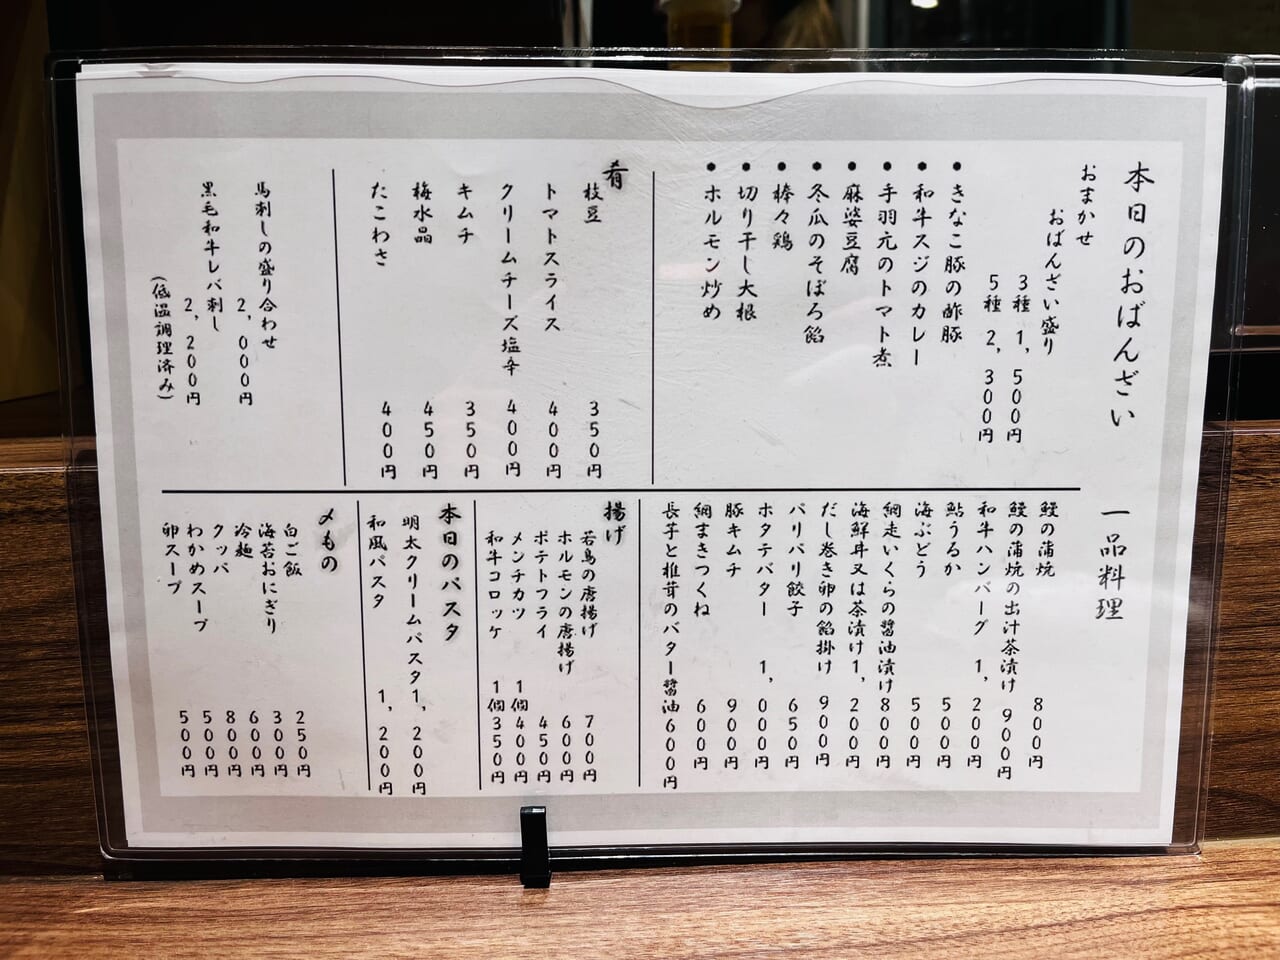 本日のおばんざい
おまかせ
おばんざい盛り
3種 1,500円
5種 2,300円
・きなこ豚の酢豚
・和牛スジのカレー
・手羽元のトマト煮
・麻婆豆腐
・冬瓜のそぼろ餡
・棒々鶏
・切り干し大根
・ホルモン炒め
肴
枝豆 350円
トマトスライス 400円
クリームチーズ塩辛 400円
キムチ 350円
梅水晶 450円
たこわさ 400円
馬刺しの盛り合わせ
2,000円
黒毛和牛レバ刺し
2,200円
(低温調理済み)
一品料理
鰻の蒲焼 800円
鰻の蒲焼の出汁茶漬け 900円
和牛ハンバーグ 1,200円
鮎うるか 500円
海ぶどう 500円
網走いくらの醤油漬け 800円
海鮮丼又は茶漬け 1,200円
だし巻き卵の餡掛け 900円
パリパリ餃子 650円
ホタテバター 1,000円
豚キムチ 900円
網まきつくね 600円
長芋と椎茸のバター醤油 600円
揚げ
若鳥の唐揚げ 700円
ホルモンの唐揚げ 600円
ポテトフライ 450円
メンチカツ 1個400円
和牛コロッケ 1個350円
本日のパスタ
明太クリームパスタ 1,200円
和風パスタ 1,200円
〆もの
白ご飯 250円
海苔おにぎり 300円
冷麺 600円
クッパ 800円
わかめスープ 500円
卵スープ 500円